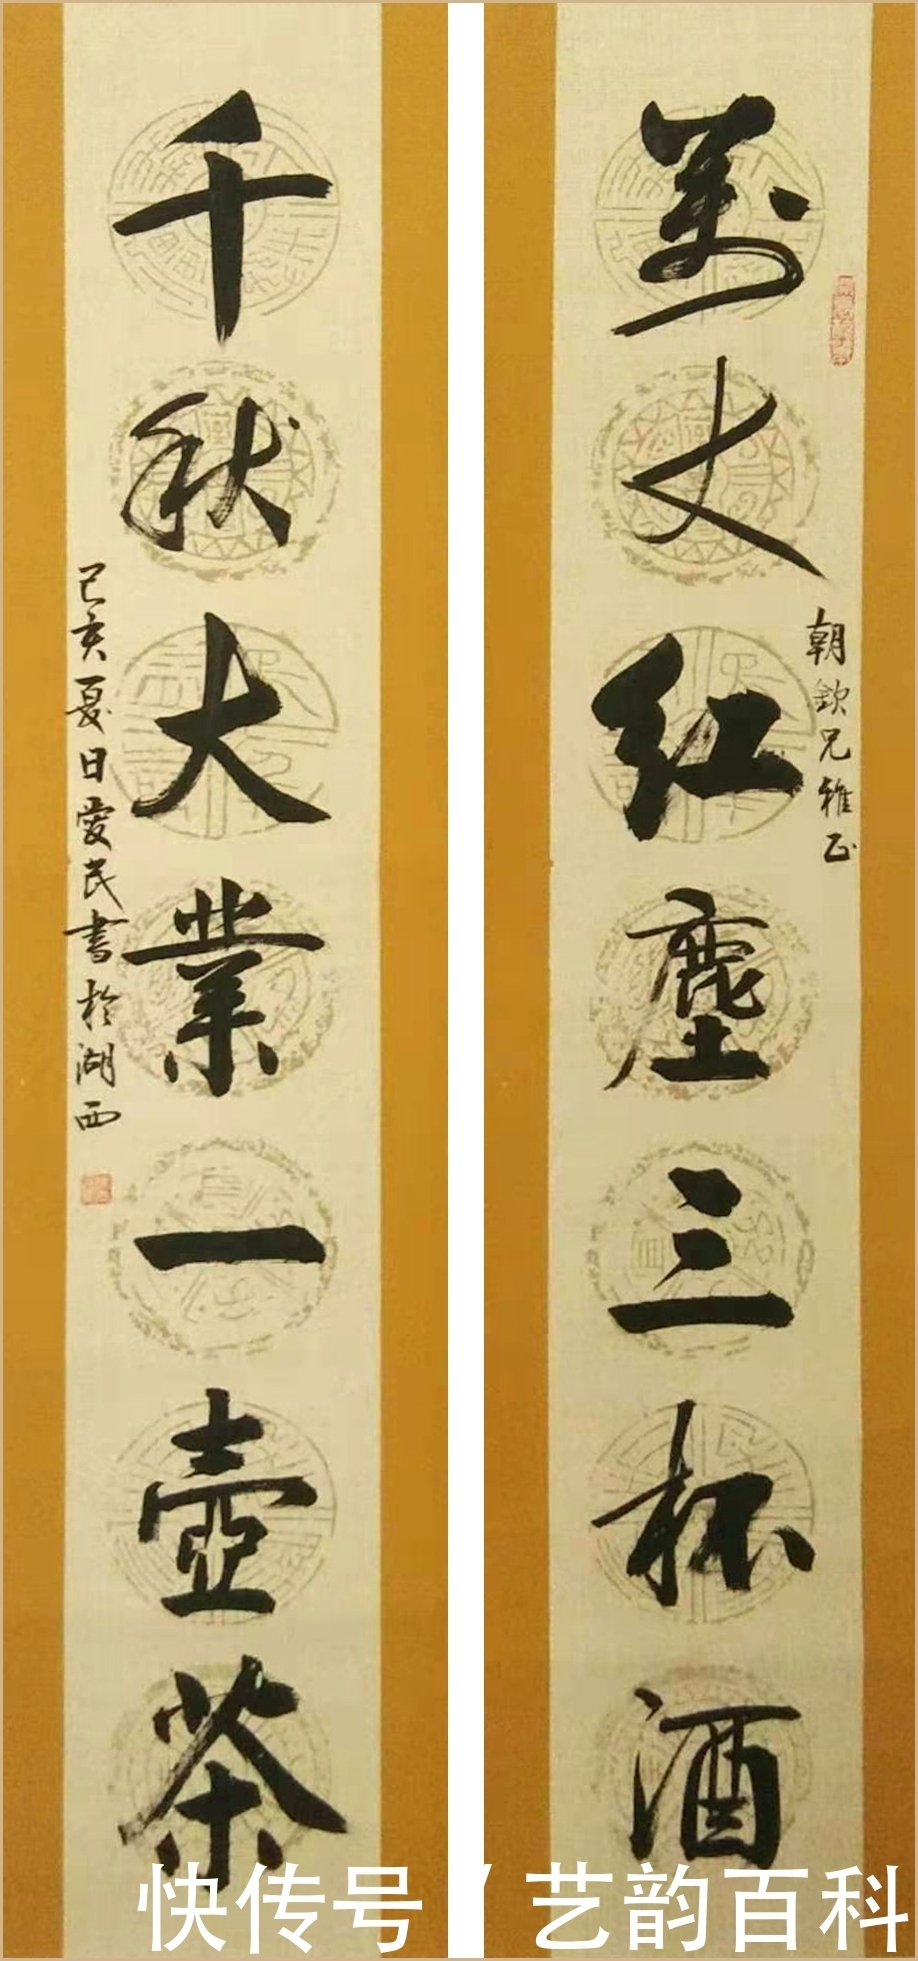 萬丈紅塵三杯酒
朝欽兄雅正
千秋大業一壺茶
己亥夏日愛民書於湖西
快传号 / 艺韵百科